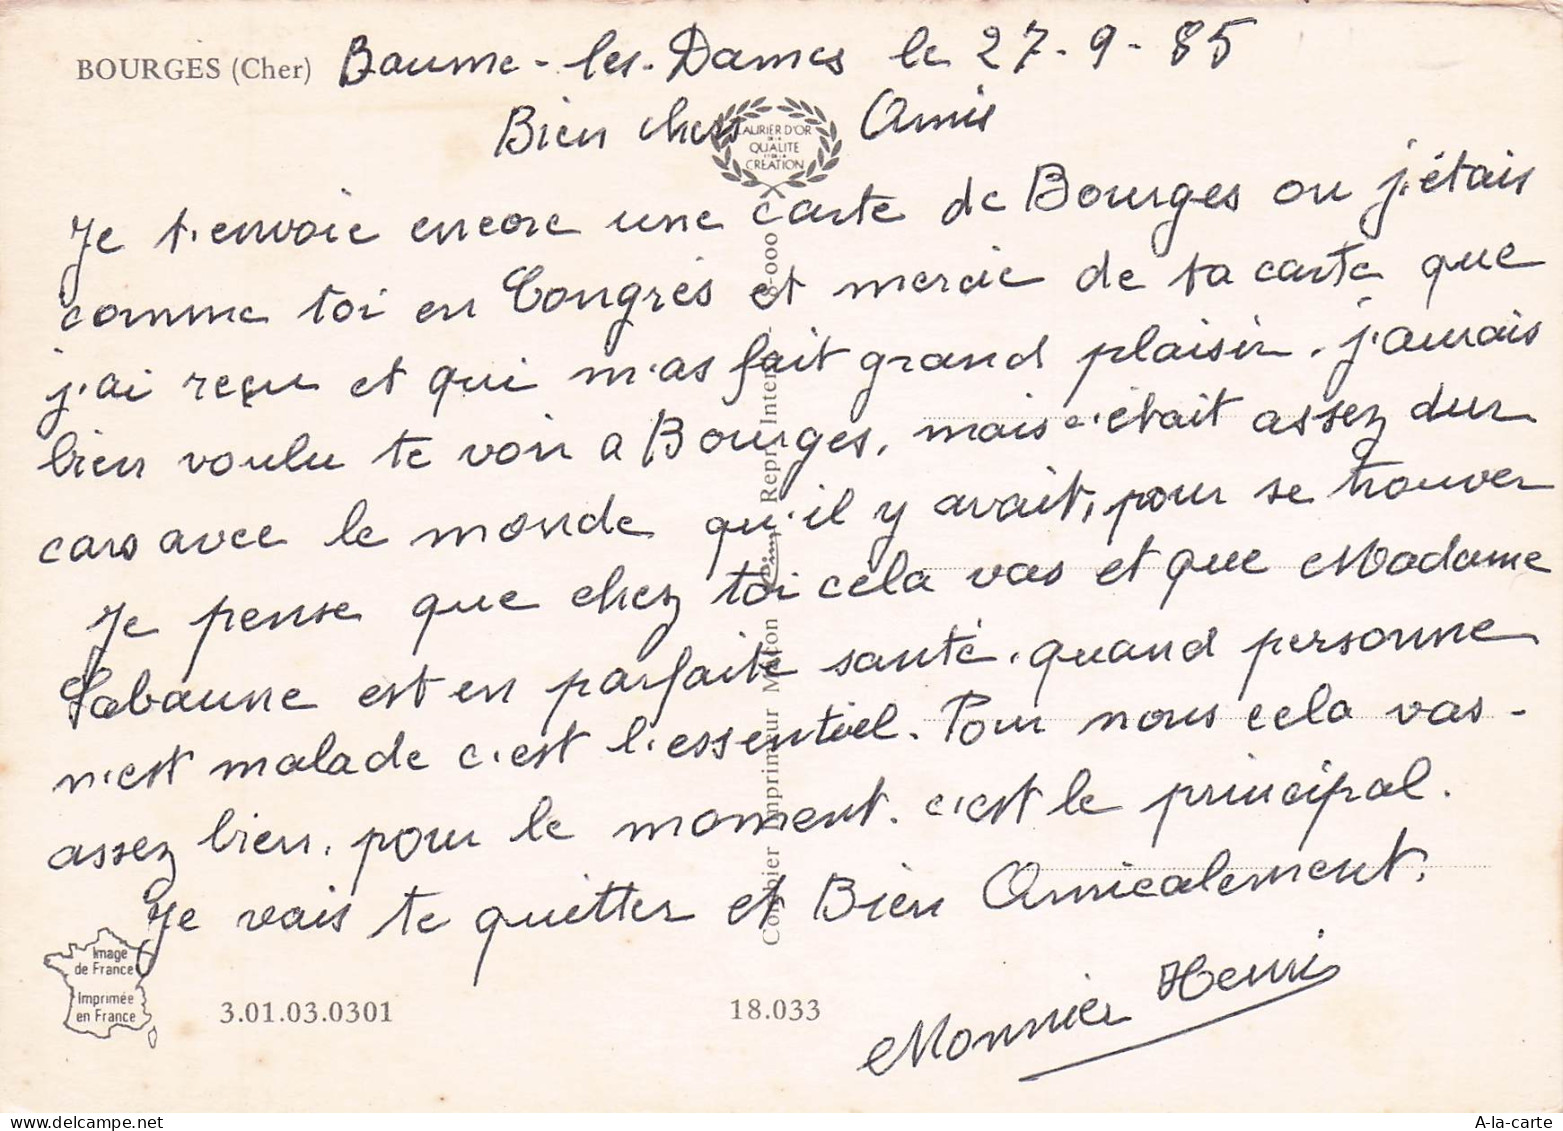 BOURGES (Cher) Baume-les-Dames le 27-9-85
Bien chers Amis
LAURIER D'OR
DE LA
QUALITE
ET DE LA
CREATION
Je t'envoie encore une carte de Bourges ou j'étais
comme toi en Congrés et mercie de ta carte que
j'ai reçu et qui m'as fait grand plaisir. j'aurais
bien voulu te voir a Bourges, mais c'était assez dur
cars avec le monde qu'il y avait, pour se trouver
Je pense que chez toi cela vas et que Madame
Labaune est en parfaite santé. quand personne
n'est malade c'est l'essentiel. Pour nous cela vas-
assez bien, pour le moment. c'est le principal.
Je vais te quitter et Bien Amicalement.
Monnier Henri
Combier Imprimeur Mâcon Repr. Interd.
Image
de France
Imprimée
en France
3.01.03.0301
18.033
A-la-carte